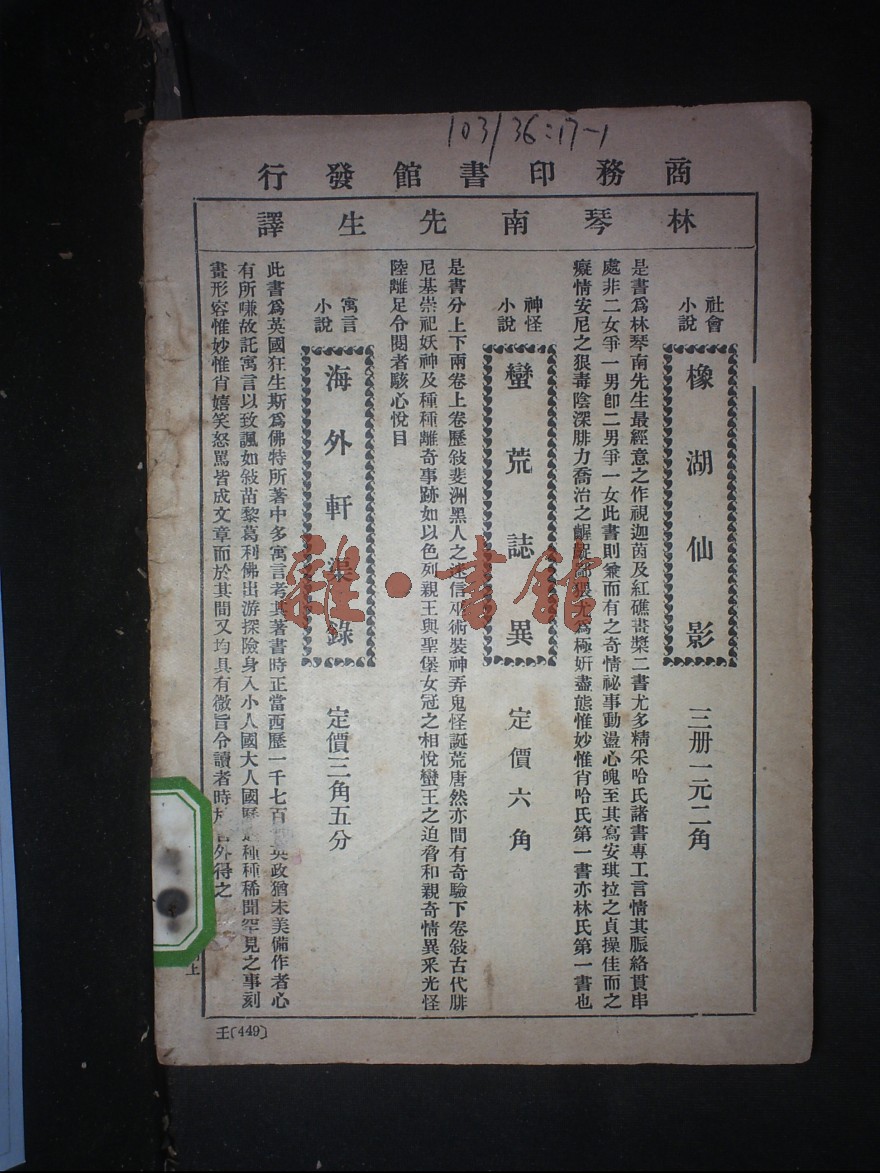 103/36:17-1
商務印書館發行
林琴南先生譯
社會小說
橡湖仙影
三册一元二角
是書爲林琴南先生最經意之作視迦茵及紅礁畫槳二書尤多精采哈氏諸書專工言情其脈絡貫串
處非二女爭一男卽二男爭一女此書則兼而有之奇情祕事動盪心魄至其寫安琪拉之貞操佳而之
癡情安尼之狠毒陰深腓力喬治之齷齪鄙猥尤爲極妍盡態惟妙惟肖哈氏第一書亦林氏第一書也
神怪小說
蠻荒誌異
定價六角
是書分上下兩卷上卷歷敍斐洲黑人之迷信巫術裝神弄鬼怪誕荒唐然亦間有奇驗下卷敍古代腓
尼基崇祀妖神及種種離奇事跡如以色列親王與聖堡女冠之相悅蠻王之迫脅和親奇情異采光怪
陸離足令閱者駭心悅目
寓言小說
海外軒渠錄
定價三角五分
此書爲英國狂生斯爲佛特所著中多寓言考其著書時正當西歷一千七百 英政猶未美備作者心
有所嗛故託寓言以致諷如敍苗黎葛利佛出游探險身入小人國大人國 種種稀聞罕見之事刻
畫形容惟妙惟肖嬉笑怒罵皆成文章而於其間又均具有微旨令讀者時 外得之
上
壬(449)
雜·書館